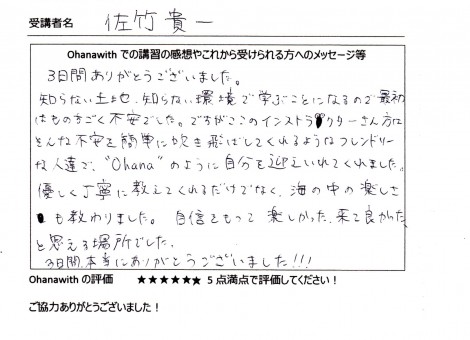 受講者名 佐竹貴一
Ohanawith での講習の感想やこれから受けられる方へのメッセージ等
3日間ありがとうございました。
知らない土地、知らない環境で学ぶことになるので最初
はものすごく不安でした。ですがここのインストラクターさん方は
そんな不安を簡単に吹き飛ばしてくれるようなフレンドリー
な人達で、"Ohana"のように自分を迎えいれてくれました。
優しく丁寧に教えてくれるだけでなく、海の中の楽しさ
も教わりました。 自信をもって 楽しかった、来て良かった
と思える場所でした。
3日間、本当にありがとうございました!!!
Ohanawith の評価 ★★★★★★ 5点満点で評価してください!
ご協力ありがとうございました!